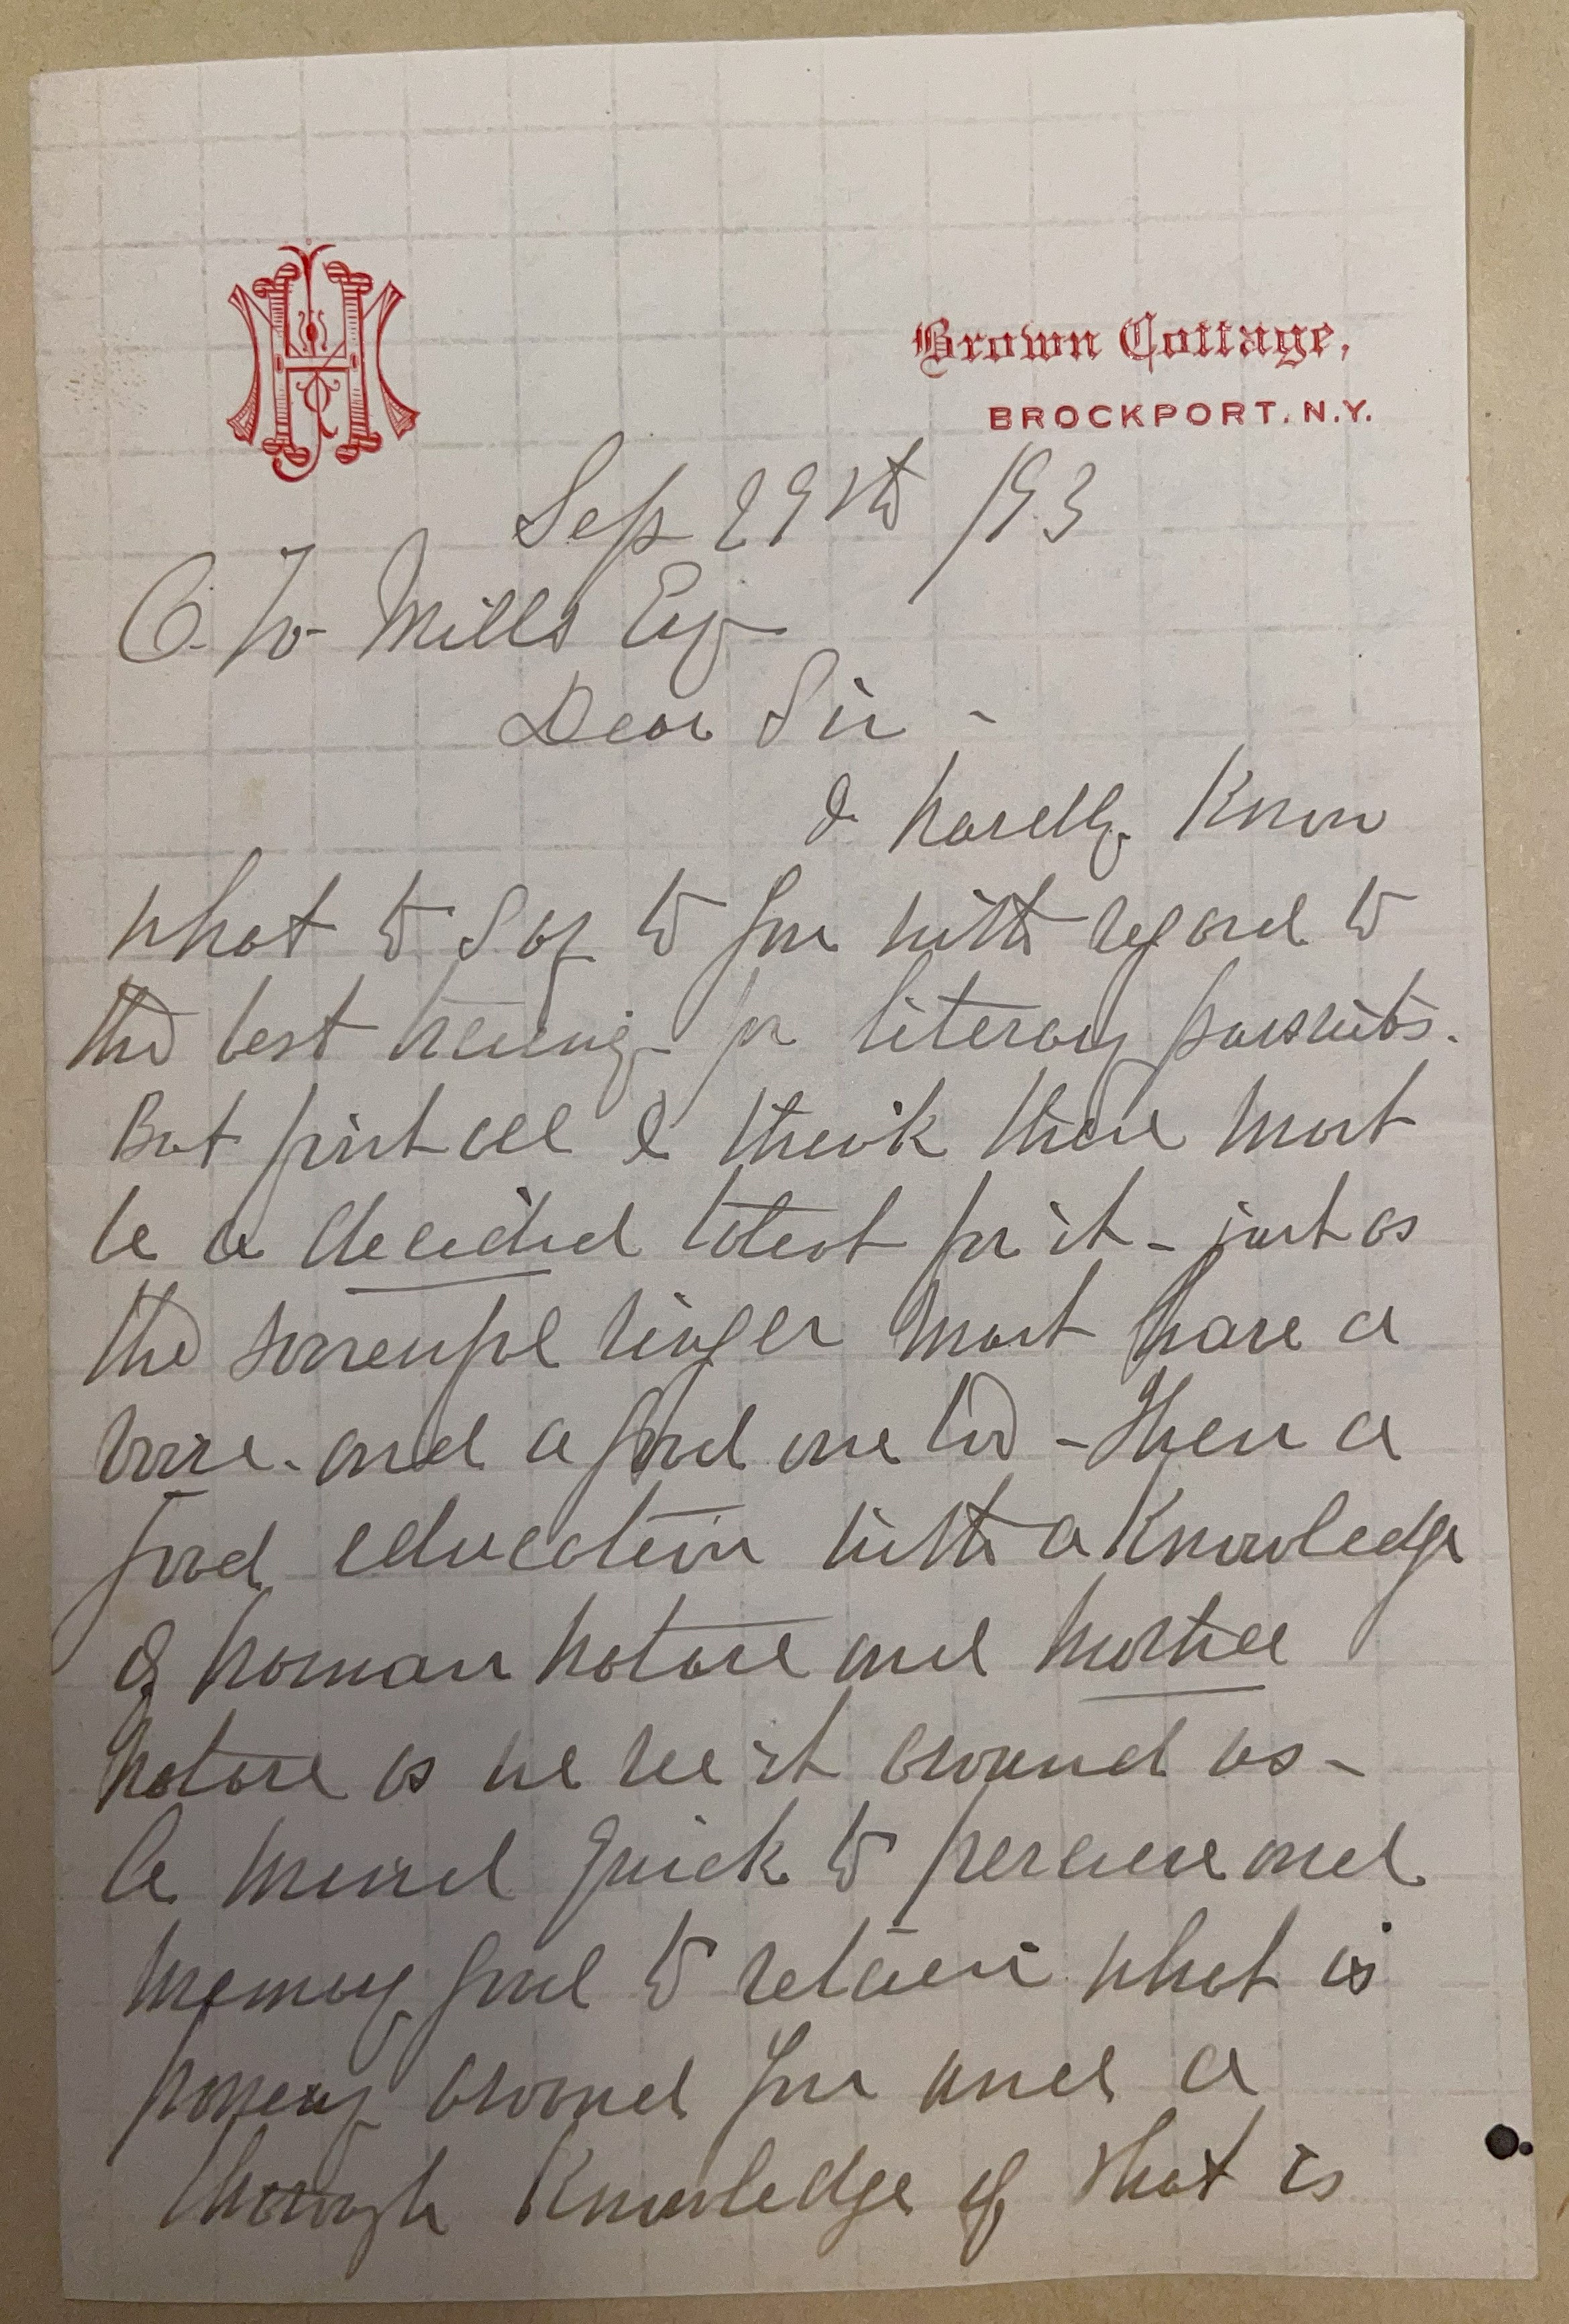 Brown Cottage,
BROCKPORT. N.Y.
Sep 29th /93
C. W. Mills Esq
Dear Sir -
I hardly Know
what to say to you with regard to
the best training for literary pursuits.
But first all I think there must
be a decided talent for it - just as
the successful singer must have a
voice - and a good one too - Then a
good education with a Knowledge
of human nature and
nature as we see it around us -
A mind quick to perceive and
memory good to retain what is
passing around you and a
thorough Knowledge of what is